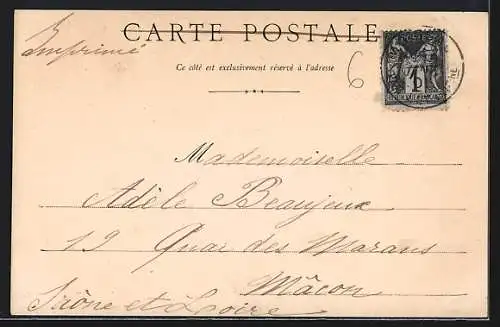 Imprimé
CARTE POSTALE
Ce côté est exclusivement réservé à l'adresse
6
1
Mademoiselle
Adèle Beaujeux
12 Quai des Marans
Mâcon
Saône et Loire